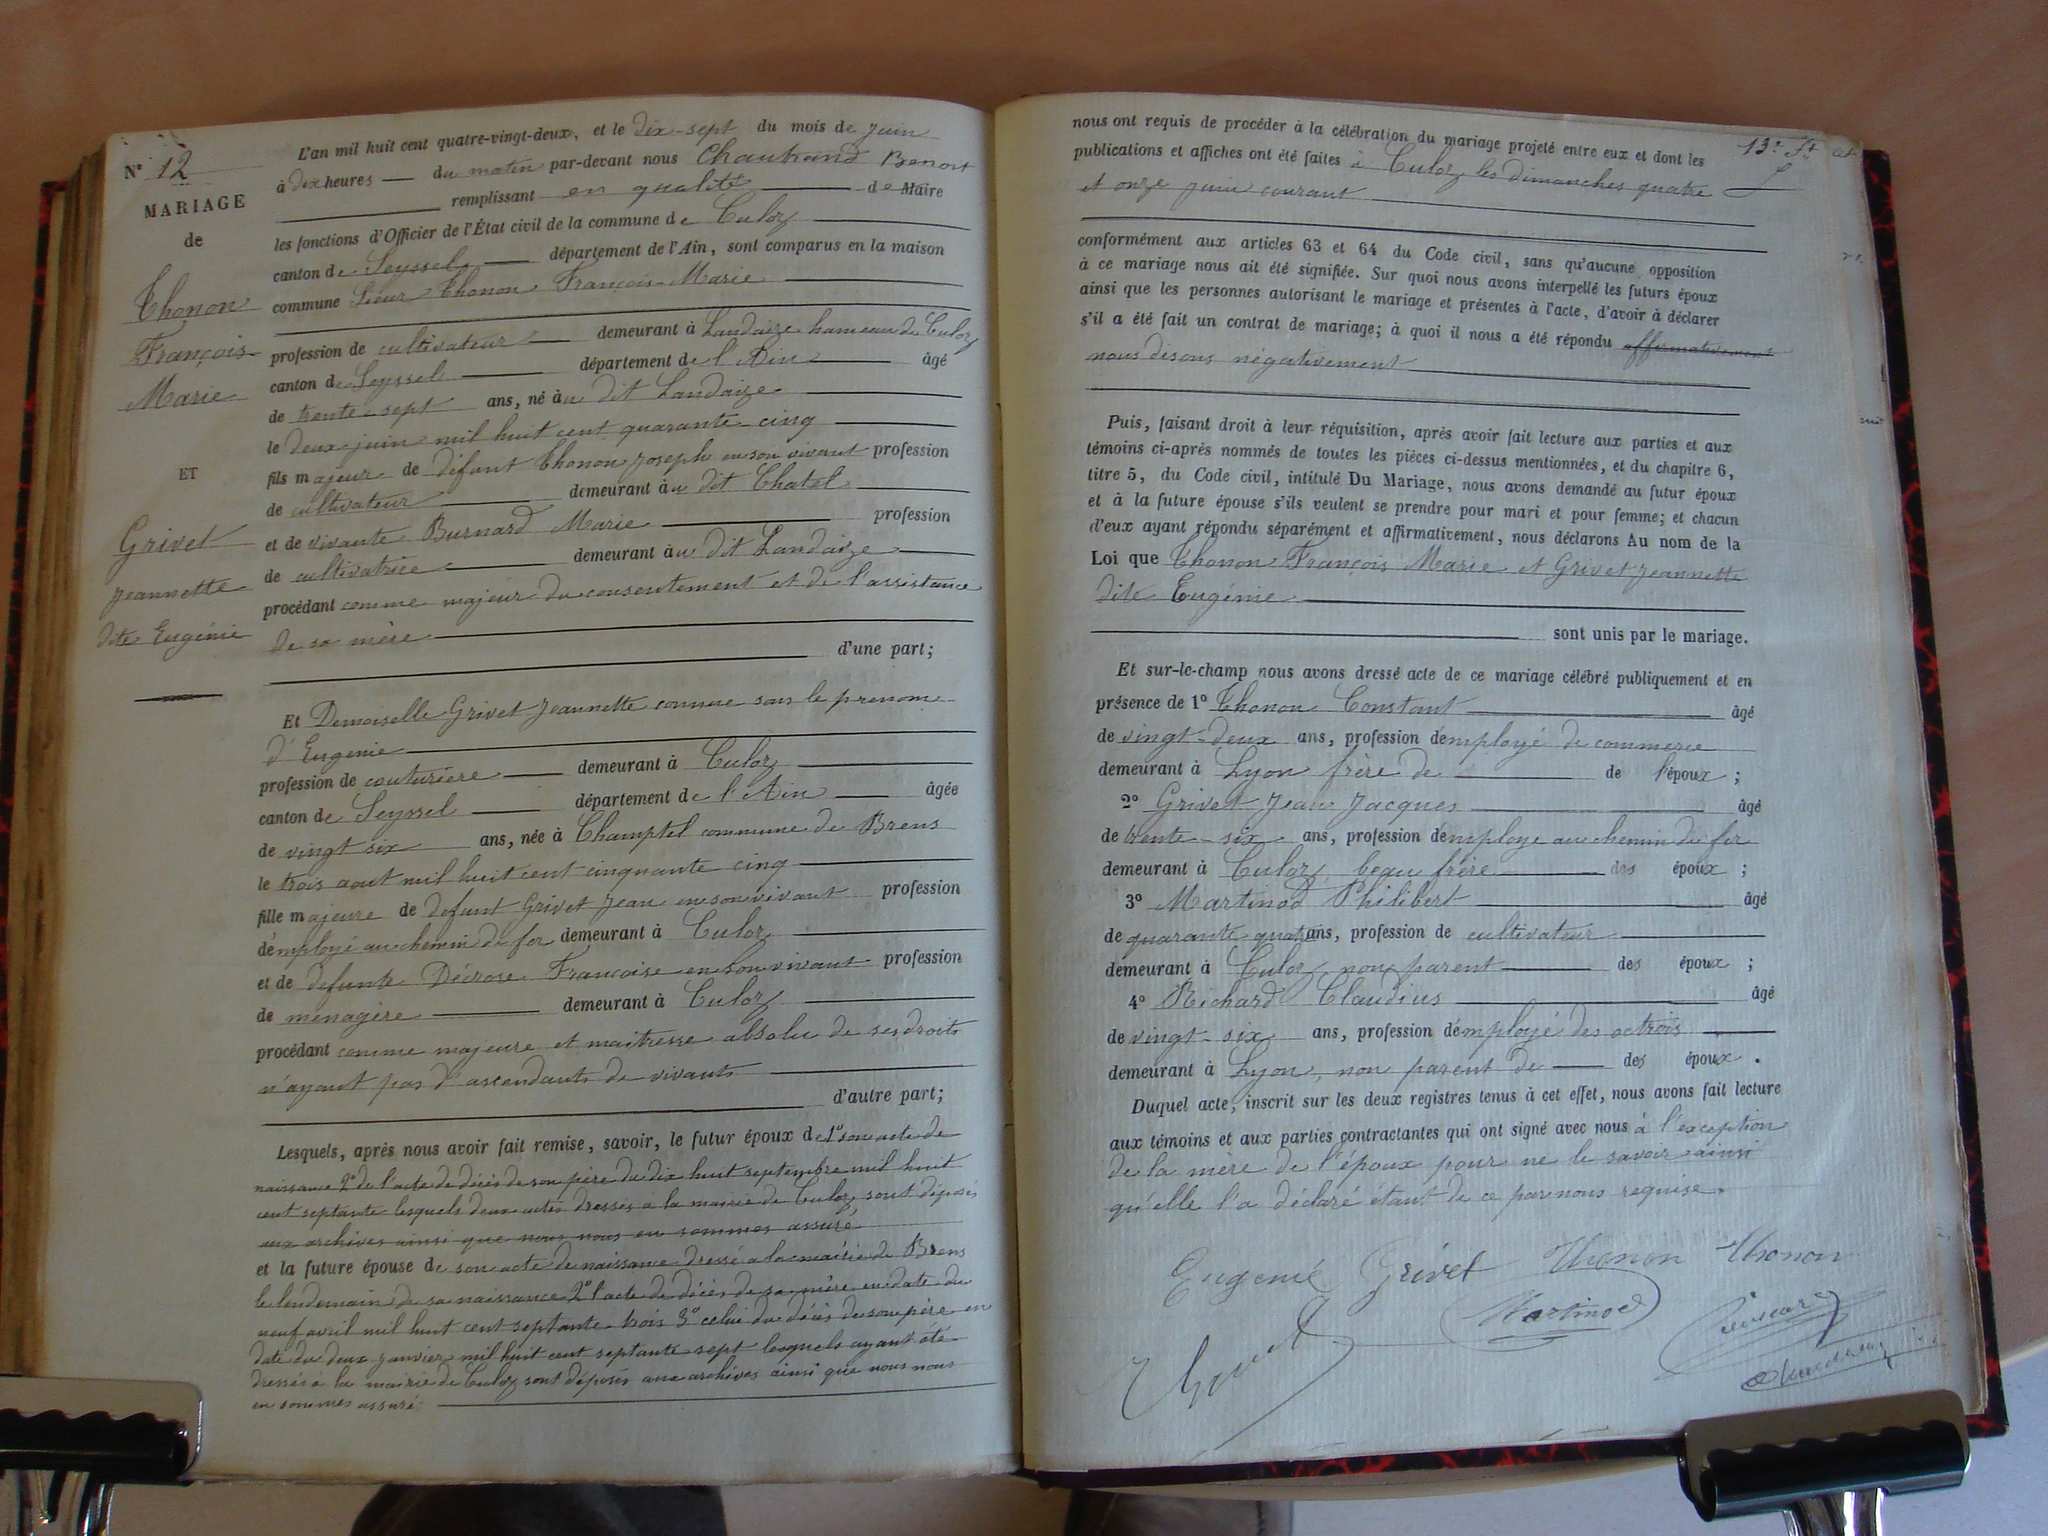 N° 12
MARIAGE
de
Thonon
François
Marie
ET
Grivet
Jeannette
dite Eugénie
L'an mil huit cent quatre-vingt-deux, et le dix-sept du mois de juin
à dix heures du matin par-devant nous Chautrand Benoit
remplissant en qualité de Maire
les fonctions d'Officier de l'État civil de la commune de Culoz
canton de Seyssel département de l'Ain, sont comparus en la maison
commune Sieur Thonon François-Marie
profession de cultivateur demeurant à Landaize hameau de Culoz
canton de Seyssel département de l'Ain âgé
de trente-sept ans, né au dit Landaize
le deux juin mil huit cent quarante cinq
fils majeur de défunt Thonon Joseph en son vivant profession
de cultivateur demeurant au dit Chatel
et de vivante Burnard Marie profession
de cultivatrice demeurant au dit Landaize
procédant comme majeur du consentement et de l'assistance
de sa mère
d'une part;
Et Demoiselle Grivet Jeannette connue sous le prenom
d'Eugénie
profession de couturière demeurant à Culoz
canton de Seyssel département de l'Ain âgée
de vingt six ans, née à Champtel commune de Brens
le trois aout mil huit cent cinquante cinq
fille majeure de defunt Grivet Jean en son vivant profession
d'employé au chemin de fer demeurant à Culoz
et de defunte Décrose Françoise en son vivant profession
de ménagère demeurant à Culoz
procédant comme majeure et maitresse absolu de ses droits
n'ayant pas d'ascendants de vivants
d'autre part;
Lesquels, après nous avoir fait remise, savoir, le futur époux de 1° son acte de
naissance 2° de l'acte de décès de son père du dix huit septembre mil huit
cent septante lesquels deux actes dressés à la mairie de Culoz sont déposés
aux archives ainsi que nous nous en sommes assuré
et la future épouse de son acte de naissance dressé a la mairie de Brens
le lendemain de sa naissance 2° l'acte de décès de sa mère en date du
neuf avril mil huit cent septante trois 3° celui du décès de son père en
date du deux janvier mil huit cent septante sept lesquels ayant été
dressés à la mairie de Culoz sont déposés aux archives ainsi que nous nous
en sommes assuré
13e Ft
nous ont requis de procéder à la célébration du mariage projeté entre eux et dont les
publications et affiches ont été faites à Culoz les dimanches quatre
et onze juin courant
conformément aux articles 63 et 64 du Code civil, sans qu'aucune opposition
à ce mariage nous ait été signifiée. Sur quoi nous avons interpellé les futurs époux
ainsi que les personnes autorisant le mariage et présentes à l'acte, d'avoir à déclarer
s'il a été fait un contrat de mariage; à quoi il nous a été répondu affirmativement
nous disons négativement
Puis, faisant droit à leur réquisition, après avoir fait lecture aux parties et aux
témoins ci-après nommés de toutes les pièces ci-dessus mentionnées, et du chapitre 6,
titre 5, du Code civil, intitulé Du Mariage, nous avons demandé au futur époux
et à la future épouse s'ils veulent se prendre pour mari et pour femme; et chacun
d'eux ayant répondu séparément et affirmativement, nous déclarons Au nom de la
Loi que Thonon François Marie et Grivet Jeannette
dite Eugénie
sont unis par le mariage.
Et sur-le-champ nous avons dressé acte de ce mariage célébré publiquement et en
présence de 1° Thonon Constant âgé
de vingt-deux ans, profession d'employé de commerce
demeurant à Lyon frère de de l'époux;
2° Grivet Jean Jacques âgé
de trente-six ans, profession d'employe au chemin de fer
demeurant à Culoz beau frère des époux;
3° Martinod Philibert âgé
de quarante quatre ans, profession de cultivateur
demeurant à Culoz non parent des époux;
4° Richard Claudius âgé
de vingt-six ans, profession d'employé des octrois
demeurant à Lyon, non parent de des époux.
Duquel acte, inscrit sur les deux registres tenus à cet effet, nous avons fait lecture
aux témoins et aux parties contractantes qui ont signé avec nous à l'exception
de la mère de l'époux pour ne le savoir ainsi
qu'elle l'a déclaré étant de ce par nous requise.
Eugenie Grivet Thonon Thonon
Martinod